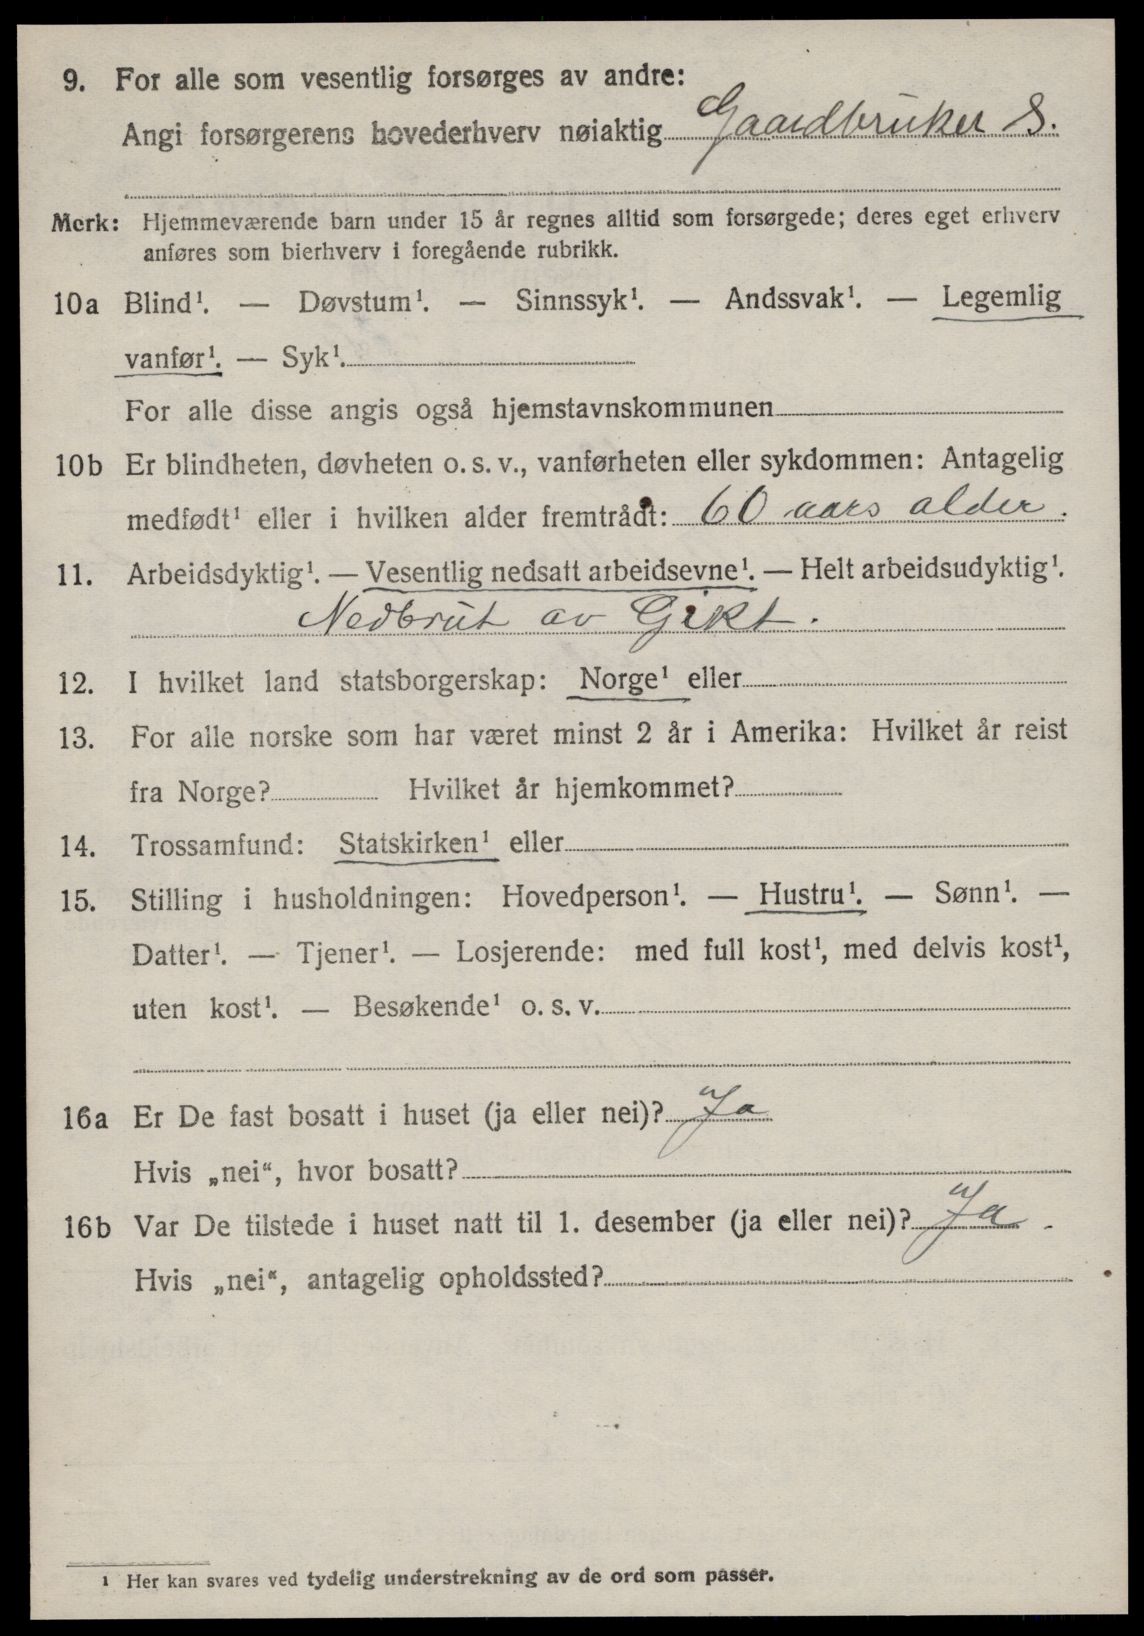 9. For alle som vesentlig forsørges av andre:
Angi forsørgerens hovederhverv nøiaktig Gaardbruker S.
Merk: Hjemmeværende barn under 15 år regnes alltid som forsørgede; deres eget erhverv
anføres som bierhverv i foregående rubrikk.
10a Blind¹. — Døvstum¹. — Sinnssyk¹. — Andssvak¹. — Legemlig
vanfør¹. — Syk¹.
For alle disse angis også hjemstavnskommunen
10b Er blindheten, døvheten o. s. v., vanførheten eller sykdommen: Antagelig
medfødt¹ eller i hvilken alder fremtrådt: 60 aars alder.
11. Arbeidsdyktig¹. — Vesentlig nedsatt arbeidsevne¹. — Helt arbeidsudyktig¹.
Nedbrut av Gikt.
12. I hvilket land statsborgerskap: Norge¹ eller
13. For alle norske som har været minst 2 år i Amerika: Hvilket år reist
fra Norge? Hvilket år hjemkommet?
14. Trossamfund: Statskirken¹ eller
15. Stilling i husholdningen: Hovedperson¹. — Hustru¹. — Sønn¹. —
Datter¹. — Tjener¹. — Losjerende: med full kost¹, med delvis kost¹,
uten kost¹. — Besøkende¹ o. s. v.
16a Er De fast bosatt i huset (ja eller nei)? Ja
Hvis „nei“, hvor bosatt?
16b Var De tilstede i huset natt til 1. desember (ja eller nei)? Ja.
Hvis „nei“, antagelig opholdssted?
¹ Her kan svares ved tydelig understrekning av de ord som passer.